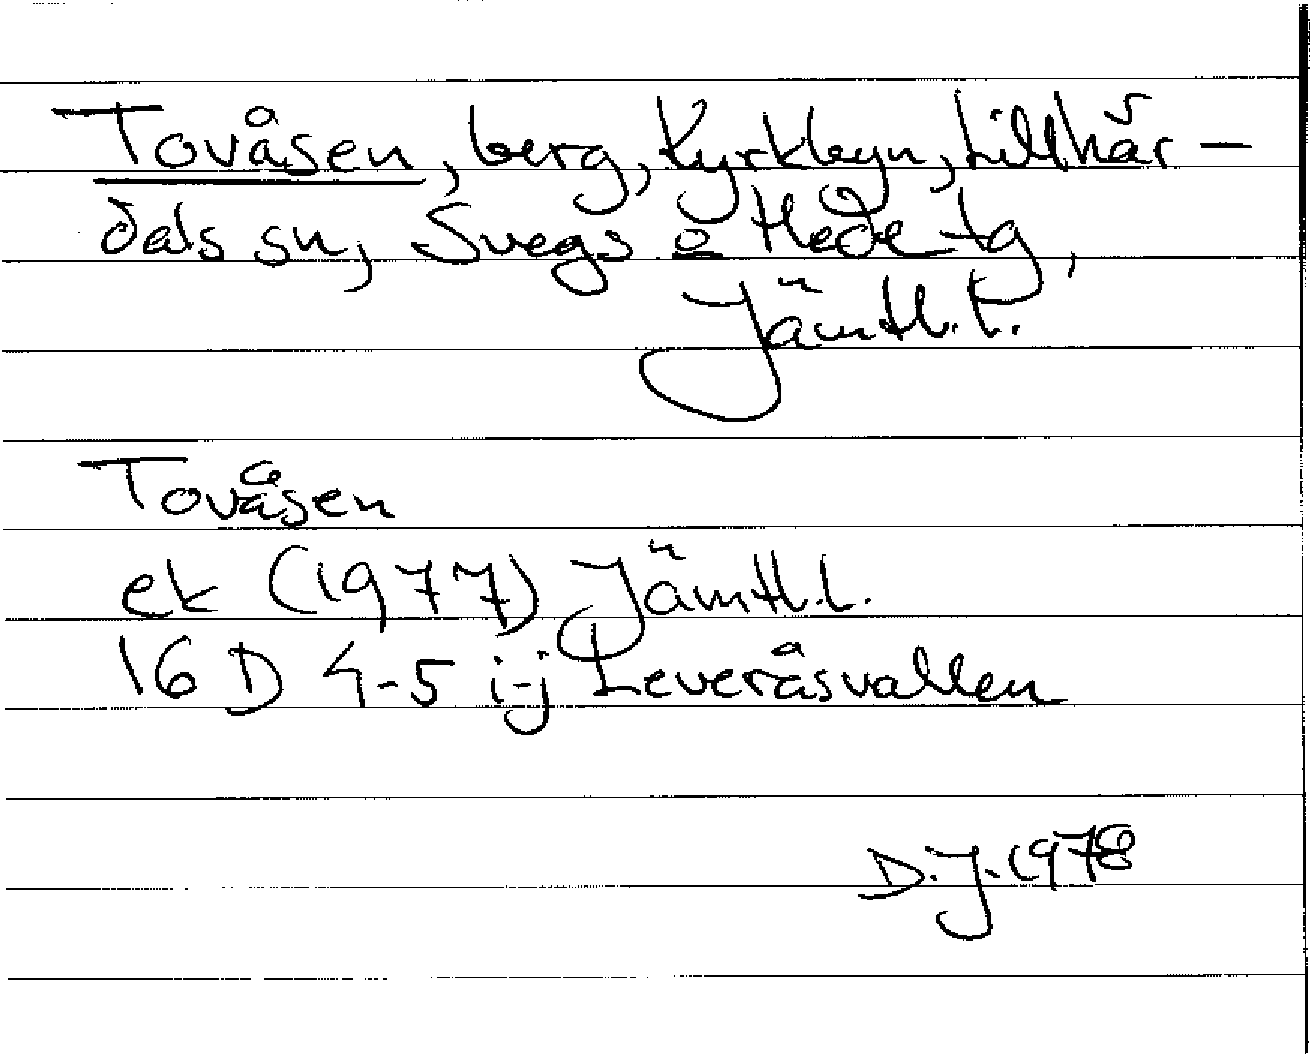 Tovåsen, berg, Kyrkbyn, Lillhär-
dals sn, Svegs o Hede tg,
Jämtl. l.
Tovåsen
ek (1977) Jämtl. l.
16 D 4-5 i-j Leveråsvallen
D.J. 1978